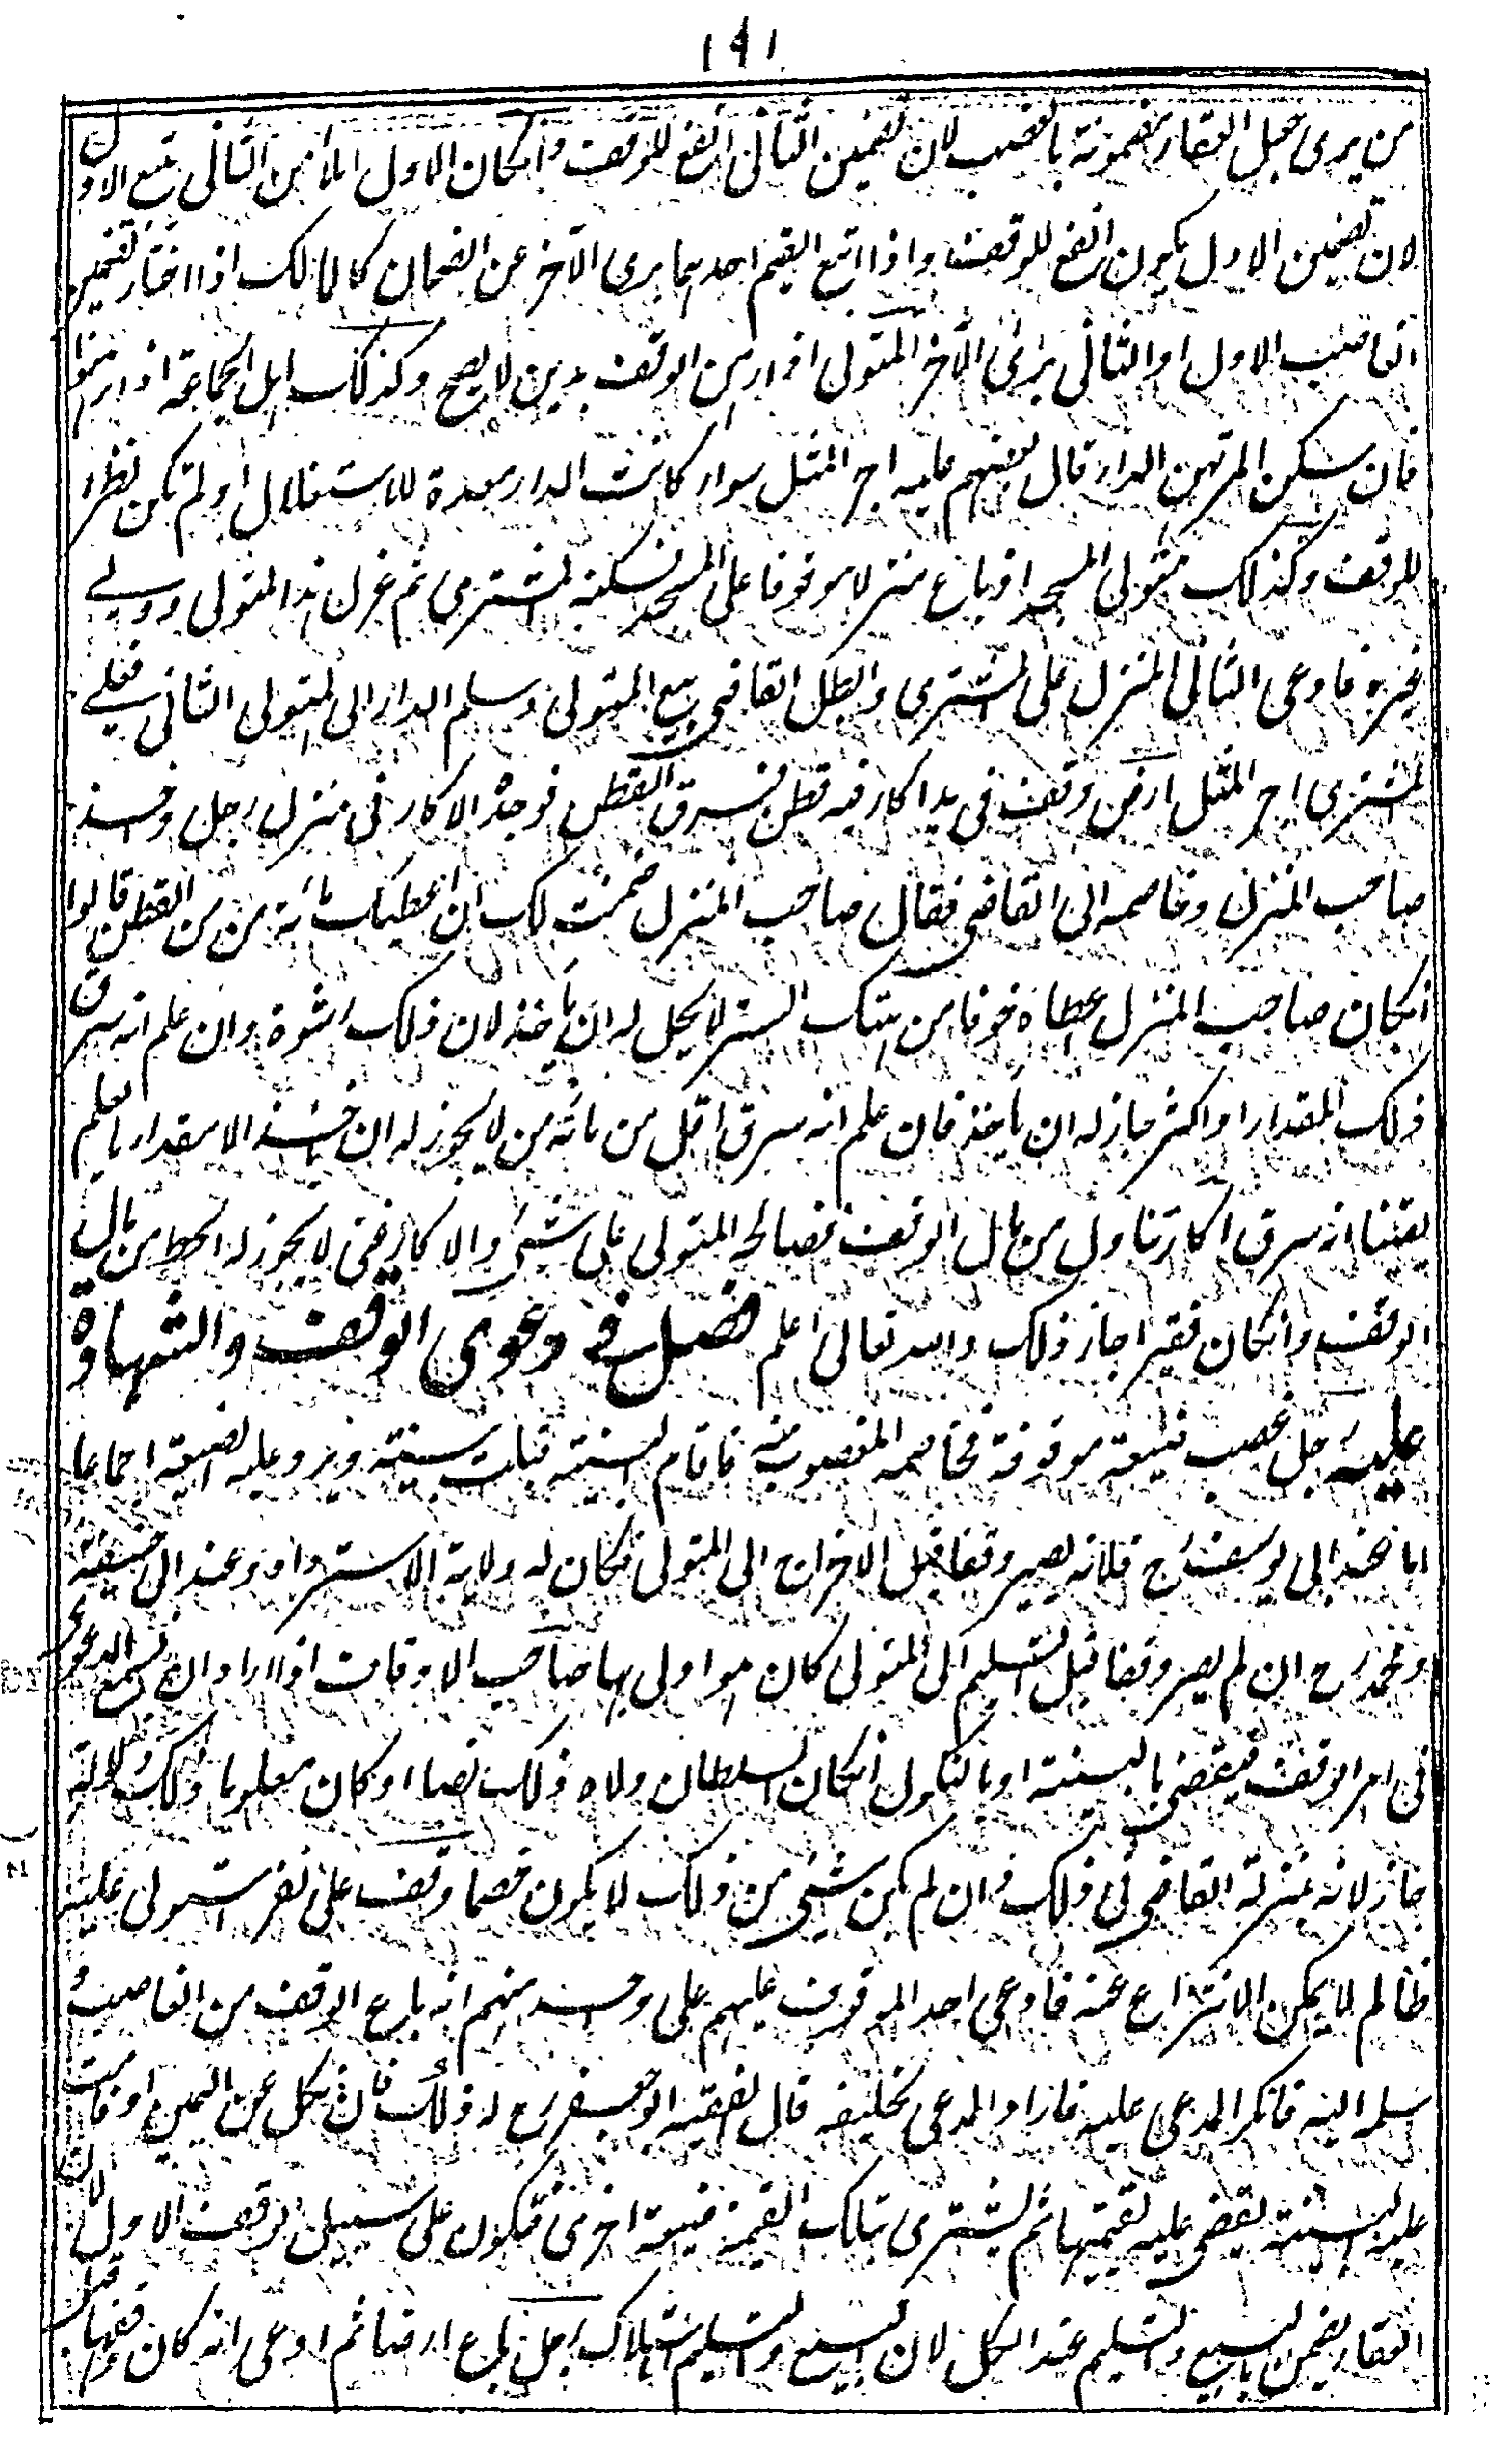 ١٩١
من يرى جعل العقار مضمونة بالغصب لان تضمين الثانى انفع للوقف وانكان الاول املأ من الثانى يتبع الاول
لان تضمين الاول يكون انفع للوقف واذا اتبع القيم احدهما برى الآخر عن الضمان كالمالك اذا اختار تضمين
الغاصب الاول او الثانى برئ الآخر المتولى اذا رهن الوقف بدين لا يصح وكذلك اهل الجماعة اذا رهنوا
فان سكن المرتهن الدار قال بعضهم عليه اجر المثل سواء كانت الدار معدة للاستغلال او لم تكن نظرا
للوقف وكذلك متولى المسجد اذا باع منزلا موقوفا على المسجد فسكنه المشترى ثم عزل هذا المتولى وولے
غيره فادعى الثانى المنزل على المشترى وابطل القاضى بيع المتولى وسلم الدار الى المتولى الثانى فعلے
المشترى اجر المثل ارض وقف فى يد اكار فيه قطن فسرق القطن فوجده الاكار فى منزل رجل وخذ
صاحب المنزل وخاصمه الى القاضى فقال صاحب المنزل ضمنت لك ان اعطيك مائة من من القطن قالوا
انكان صاحب المنزل اعطاه خوفا من هتك الستر لا يحل له ان ياخذ لان ذلك رشوة وان علم انه سرق
ذلك المقدار او اكثر جاز له ان ياخذ فان علم انه سرق اقل من مائة من لا يجوز له ان ياخذ الا مقدار ما يعلم
يقينا انه سرق اكار تناول من مال الوقف فصالحه المتولى على شئ والاكار غنى لا يجوز له الحط من مال
الوقف وانكان فقيرا جاز ذلك والله تعالى اعلم فصل فے دعوى الوقف والشهادة
عليه رجل غصب ضيعة موقوفة فخاصمه المغصوب منه فاقام البينة قبلت بينته ويرد عليه الضيعة اجماعا
اما عند ابى يوسف رح فلانه يصير وقفا قبل الاخراج الى المتولى فكان له ولاية الاسترداد وعند ابى حنيفة
ومحمد رح ان لم يصر وقفا قبل التسليم الى المتولى كان هو اولى بها صاحب الاوقات اذا اراد ان يسمع الدعوى
فى امر الوقف فيقضى بالبينة او بالنكول انكان السلطان ولاه ذلك نصا او كان معلوما ذلك دلالة
جاز لانه بمنزلة القاضى فى ذلك وان لم يكن شئ من ذلك لا يكون خصما وقف على نفر استولى عليه
ظالم لا يمكن الانتزاع عنه فادعى احد الموقوف عليهم على واحد منهم انه باع الوقف من الغاصب و
سلم اليه فانكر المدعى عليه فاراد المدعى تحليفه قال الفقيه ابو جعفر رح له ذلك فان نكل عن اليمين او قامت
عليه البينة يقضى عليه بقيمتها ثم يشترى بتلك القيمة ضيعة اخرى فتكون على سبيل الوقف الاول لان
العقار يضمن بالبيع والتسليم عند الكل لان البيع والتسليم استهلاك رجل باع ارضا ثم ادعى انه كان وقفها قبل